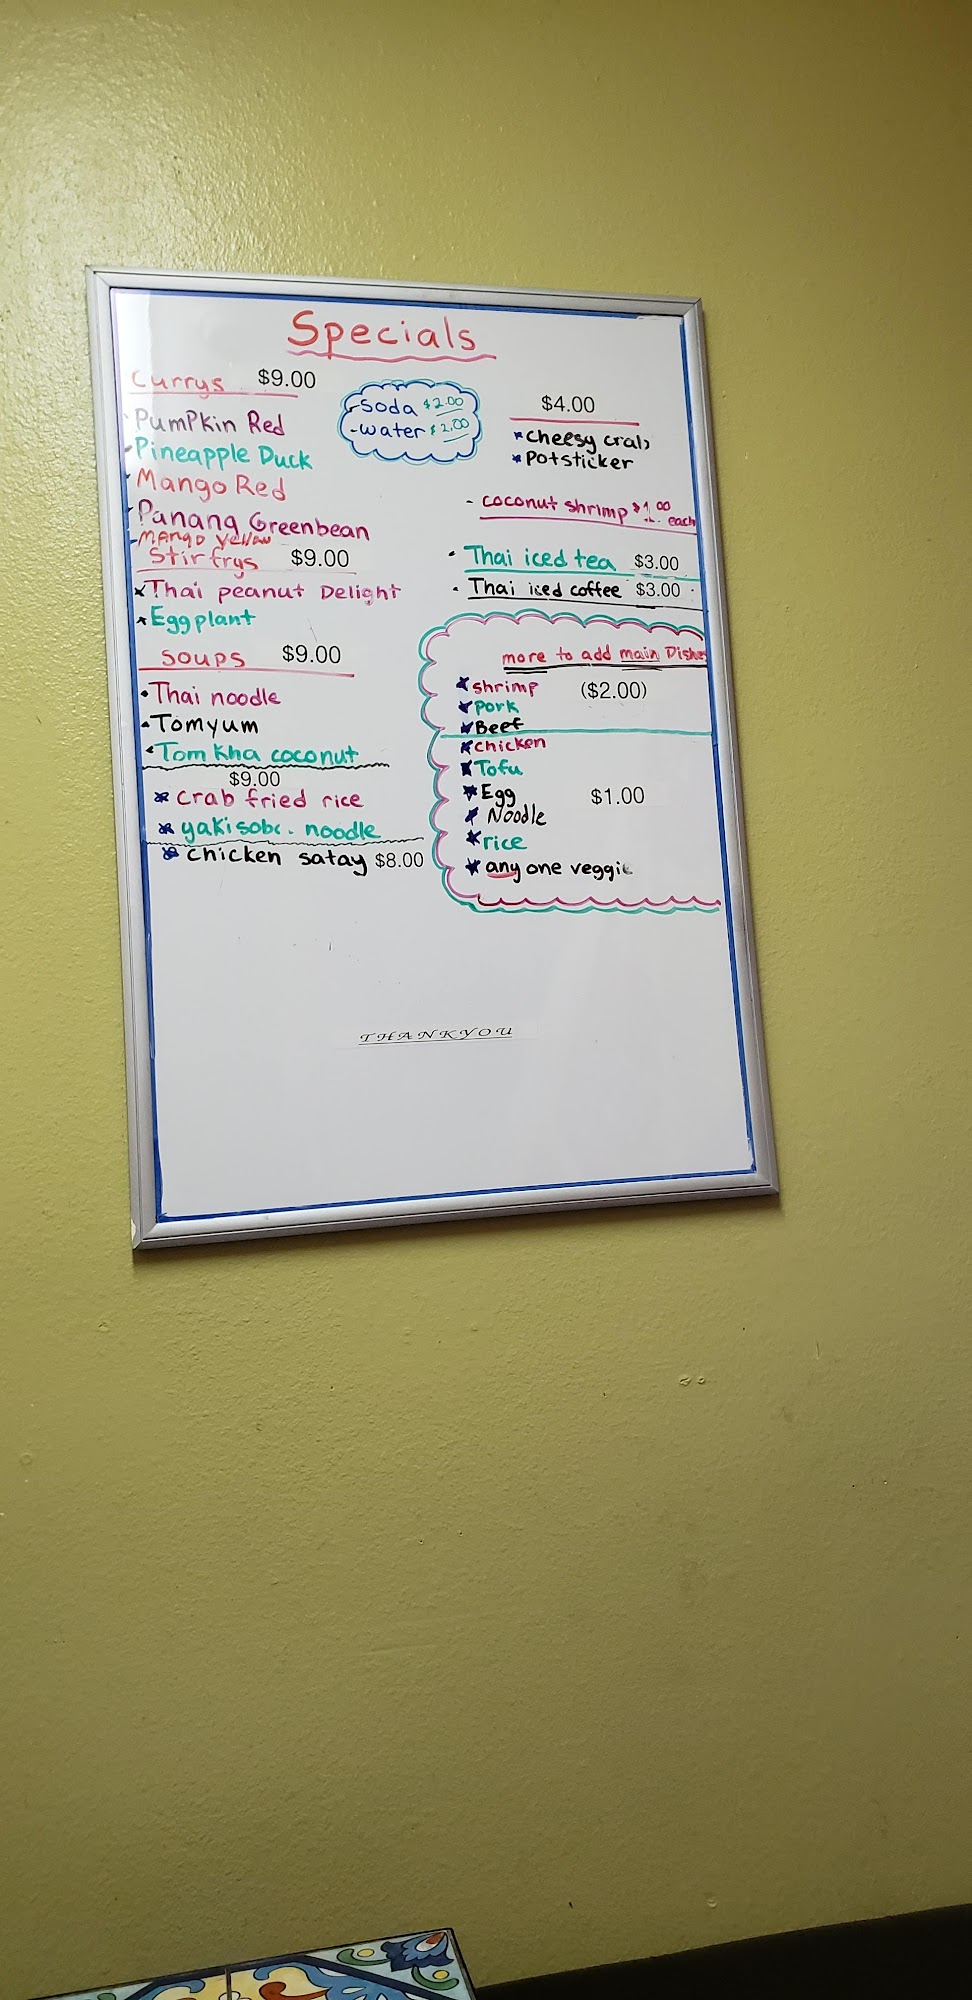 Specials
Currys $9.00
PumPkin Red
-Pineapple Duck
Mango Red
Panang Greenbean
-Mango Yellow
Stir frys $9.00
Thai peanut Delight
Eggplant
Soups $9.00
Thai noodle
Tomyum
Tom Kha coconut
$9.00
Crab fried rice
yakisoba noodle
chicken satay $8.00
-Soda $2.00
-water $2.00
$4.00
cheesy crab
Potsticker
- coconut shrimp $1.00 each
Thai iced tea $3.00
Thai iced coffee $3.00
more to add main Dishes
shrimp ($2.00)
Pork
Beef
chicken
Tofu
Egg $1.00
Noodle
rice
any one veggie
THANKYOU